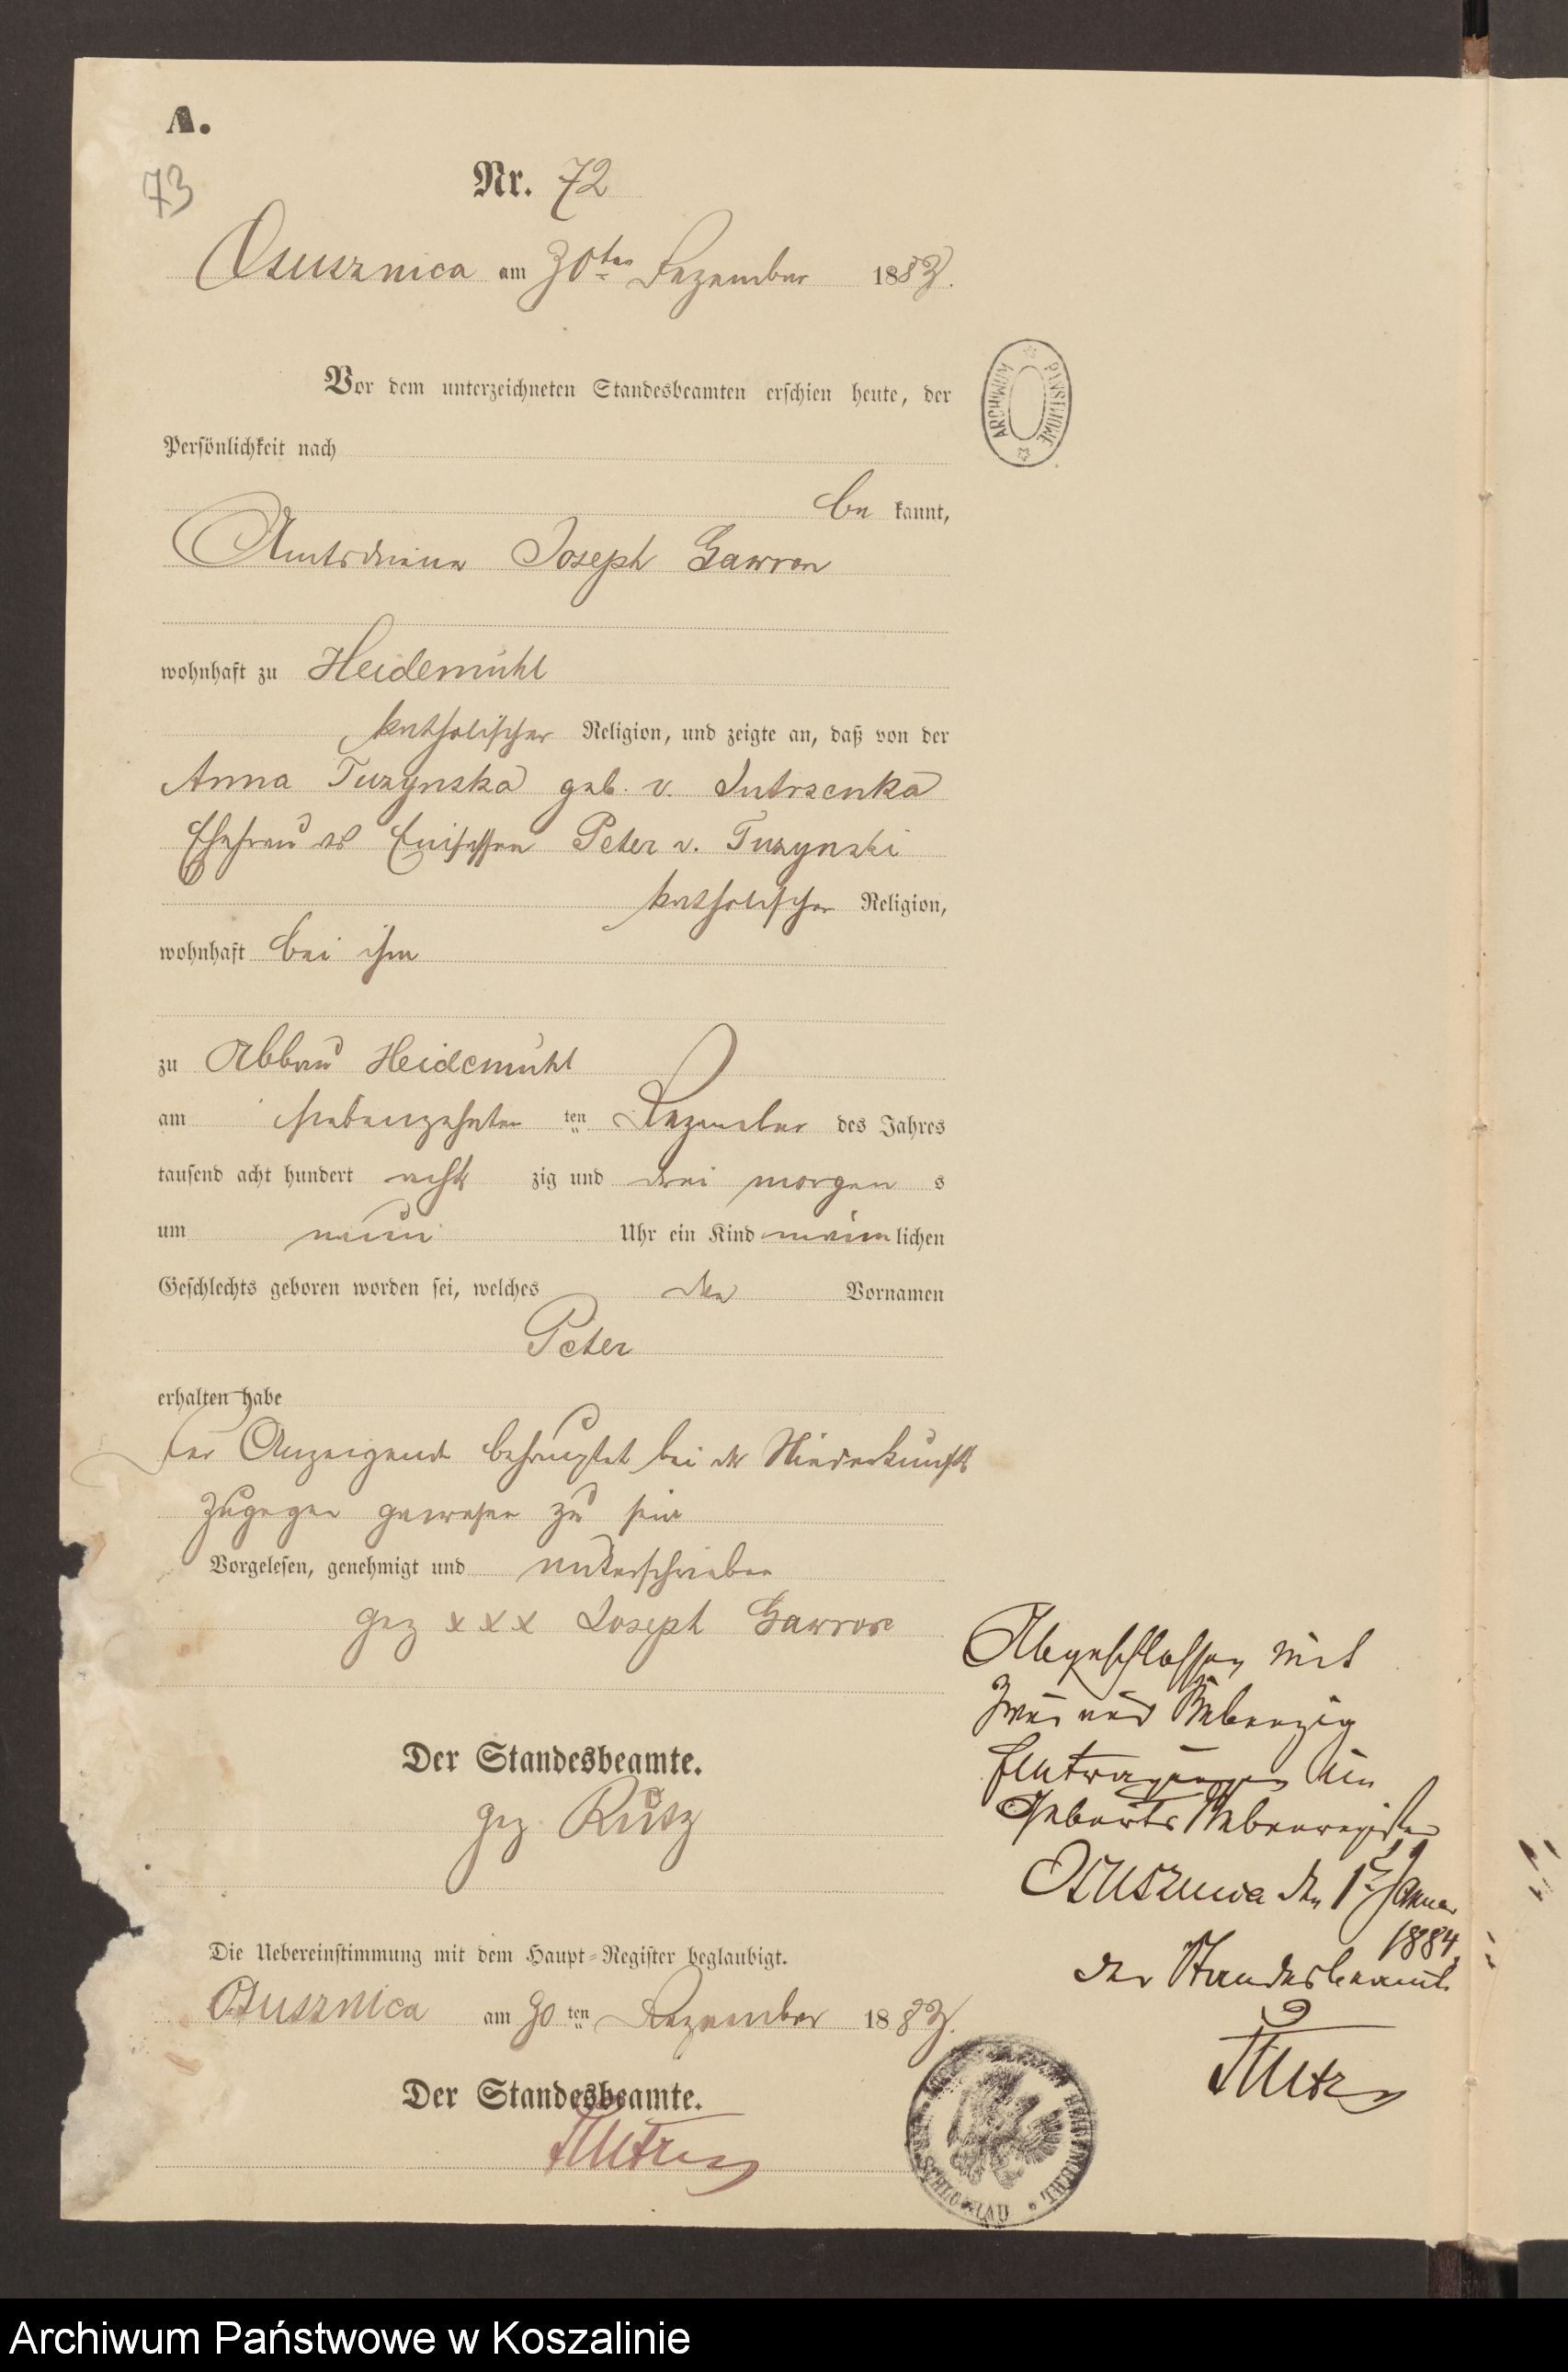 A.
73
Nr. 72
Osusznica am 30ten Dezember 1883.
Vor dem unterzeichneten Standesbeamten erschien heute, der
Persönlichkeit nach
be kannt,
Amtsdiener Joseph Gawron
wohnhaft zu Heidemühl
katholischer Religion, und zeigte an, daß von der
Anna Tuzynska geb. v. Jutrzenka
Ehefrau des Peter v. Tuzynski
katholischer Religion,
wohnhaft bei ihm
zu Abbau Heidemühl
am siebenzehnten ten Dezember des Jahres
tausend acht hundert acht zig und drei morgen s
um neun Uhr ein Kind männlichen
Geschlechts geboren worden sei, welches den Vornamen
Peter
erhalten habe
Der Anzeigende behauptet bei der Niederkunft
zugegen gewesen zu sein
Vorgelesen, genehmigt und unterschrieben
gez xxx Joseph Gawron
Der Standesbeamte.
gez. Rutz
Die Uebereinstimmung mit dem Haupt-Register beglaubigt.
Osusznica am 30 ten Dezember 1883.
Der Standesbeamte.
Abgeschlossen mit
zwei und siebenzig
Eintragungen im
Geburts Nebenregister
Osusznica den 1. Januar
1884.
der Standesbeamte
ARCHIWUM PAŃSTWOWE
Archiwum Państwowe w Koszalinie